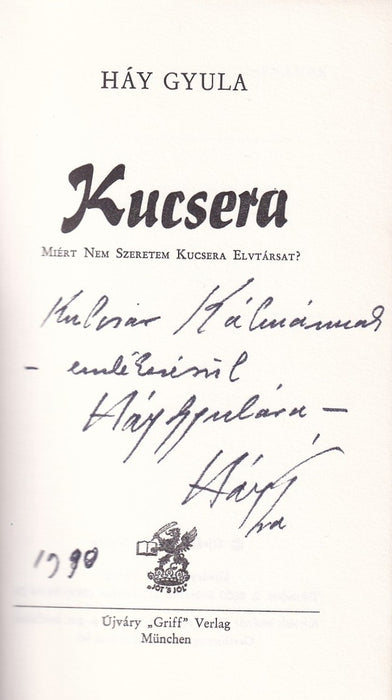 HÁY GYULA
Kucsera
MIÉRT NEM SZERETEM KUCSERA ELVTÁRSAT?
Kulcsár Kálmánnak
– emlékezésül
Háy Gyulára –
Háy
1990
"JOT'S JOL"
Újváry „Griff" Verlag
München